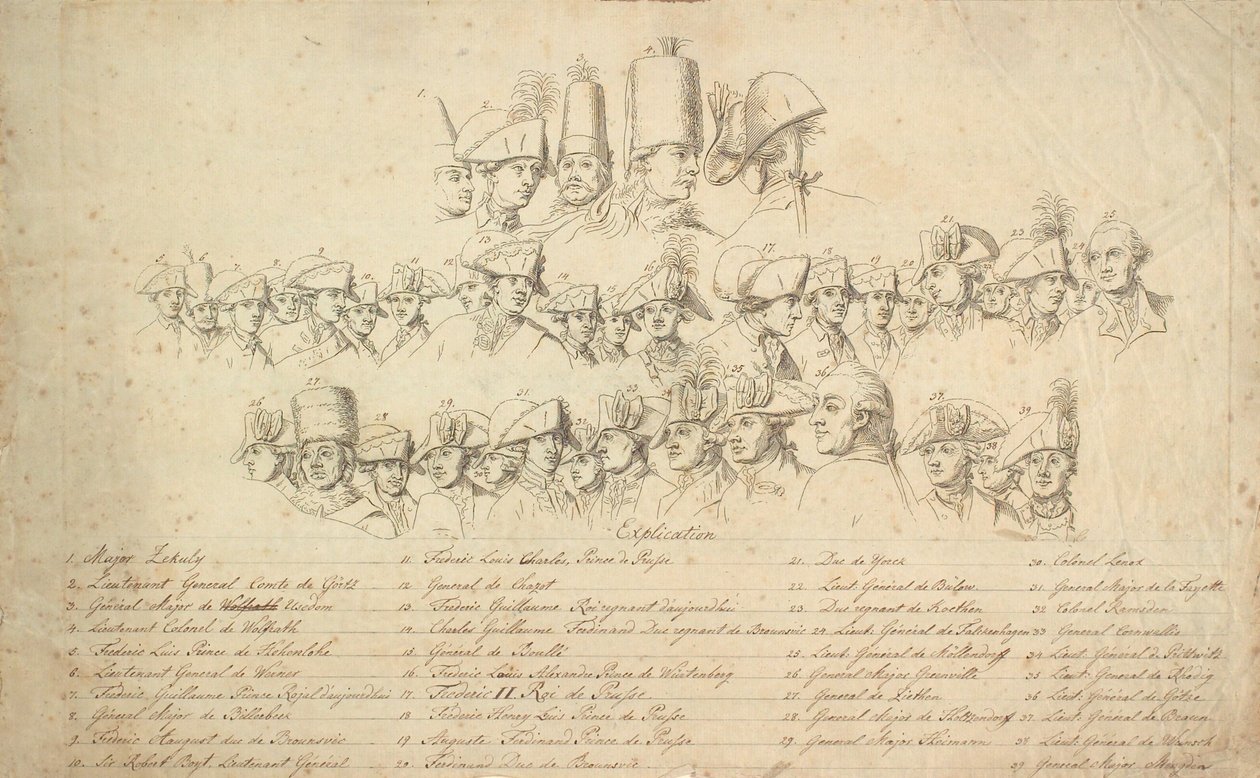 1. 2. 3. 4.
5 6 7. 8 9 10. 11 12 13 14 15 16 17. 18 19 20 21. 23 24 25.
26 27 28 29. 31. 32 33 35 36 37 38 39
Explication
1. Major Zekuly
2. Lieutenant General Comte de Görtz
3. Général Major de Wolfrath Usedom
4. Lieutenant Colonel de Wolfrath
5. Frederic Luis Prince de Hohenlohe
6. Lieutenant General de Werner
7. Frederic Guillaume Prince Royal d'aujourdhui
8. Général Major de Billerbeck
9. Federic August duc de Brounsvic
10. Sir Robert Boyt, Lieutenant Général
11. Frederic Louis Charles, Prince de Prusse
12 General de Chazot
13. Frederic Guillaume Roi regnant d'aujourdhui
14. Charles Guillaume Ferdinand Duc regnant de Brounsvic
15 General de Boullé
16. Frederic Louis Alexandre Prince de Würtenberg
17. Frederic II. Roi de Prusse
18 Frederic Henry Luis Prince de Prusse
19 Auguste Ferdinand Prince de Prusse
20. Ferdinand Duc de Brounsvic
21. Duc de Yorck
22. Lieut. Général de Bülow
23 Duc regnant de Koethen
24. Lieut: Général de Falkenhagen
25. Lieut: Général de Möllendorff
26 General Major Grenville
27. General de Ziethen
28. General Major de Holtzendorff
29. General Major Heimann
30. Colonel Lenox
31. General Major de la Fayette
32 Colonel Ramsden
33 General Cornwallis
34 Lieut. General de Prittwitz
35 Lieut: General de Rhodig
36 Lieut: Général de Götze
37. Lieut: General de Braun
38 Lieut: Général de Wunsch
39 General Major Mengden